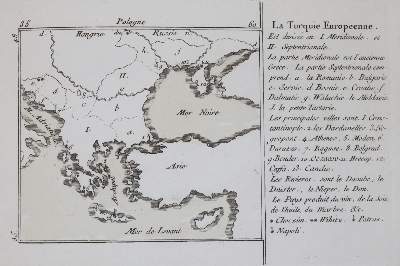 35 Pologne 60
Hongrie Russie
Mer Noire
II
I
Asie
Archipel
Mer de Levant
La Turquie Europeenne.
Est divisée en I. Meridionale. et
II. Septentrionale.
La partie Meridionale est l'ancienne
Grece. La partie Septentrionale com
prend. a. la Romanie b. Bulgarie
c. Servie d. Bosnie e. Croatie f.
Dalmatie g. Walachie h. Moldavie
i. la petite Tartarie.
Les principales villes sont 1. Cons-
tantinople. 2. les Dardanelles 3.
4. Athenes. 5. Modon. 6.
Durazzo. 7. Raguse. 8. Belgrad.
9. Bender. 10. Oczakow 11. Precop. 12.
Caffa. 13. Candie.
Les Rivieres sont le Danube, le
Dniester, le Nieper, le Don.
Le Pays produit du vin, de la soie
de l'huile, du Marbre &c.
Choczim. Patras.
Napoli.